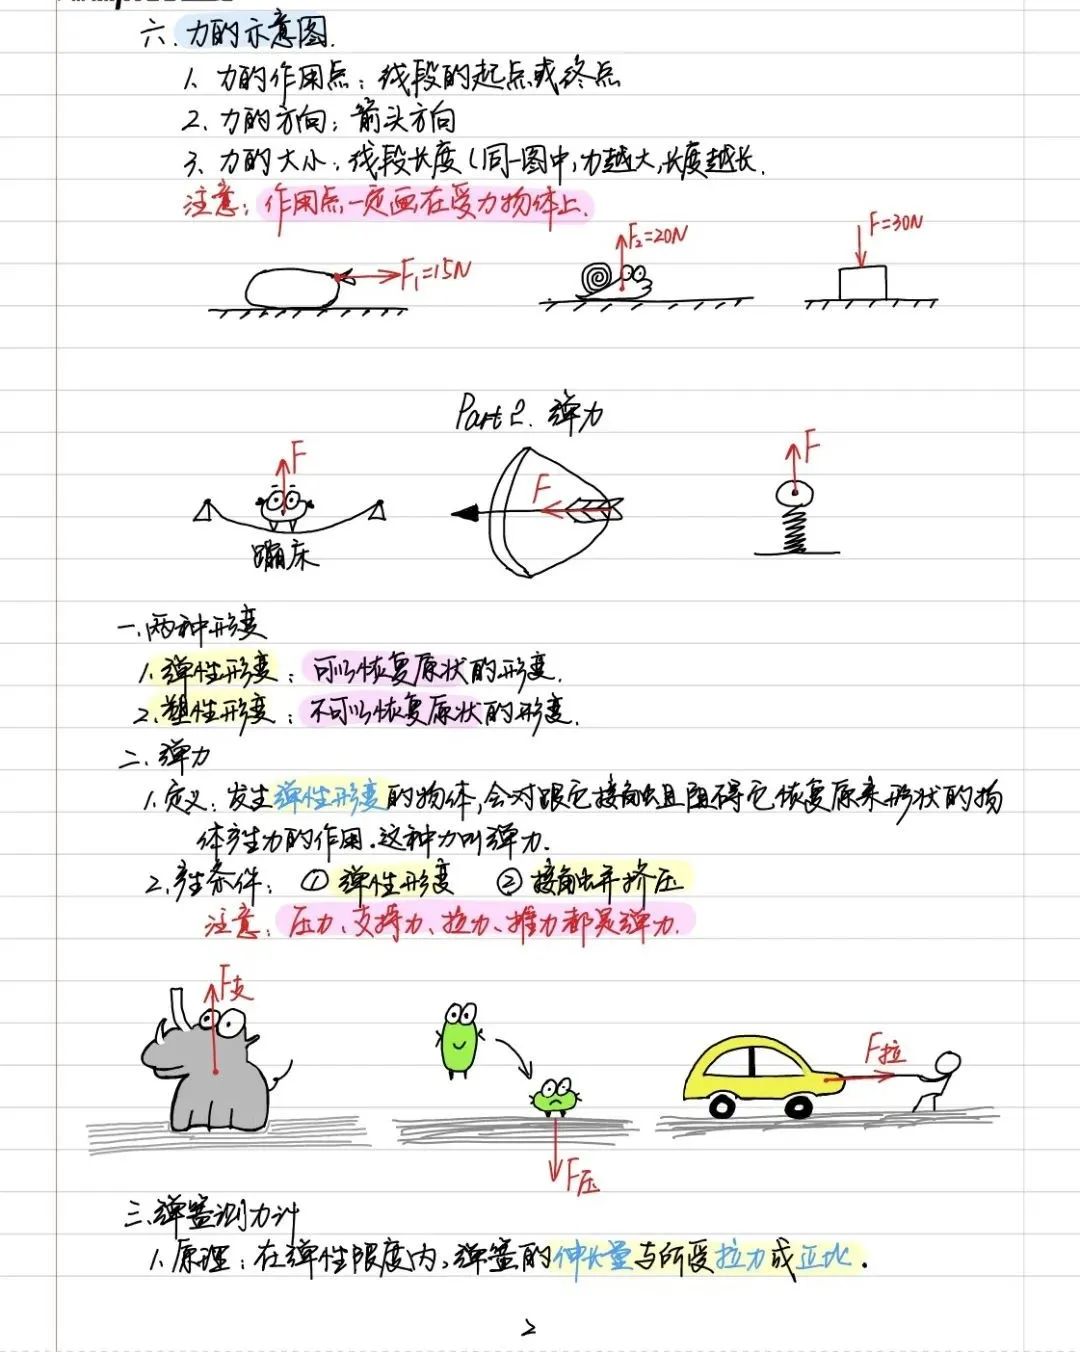 六.力的示意图.
1、力的作用点：线段的起点或终点
2、力的方向：箭头方向
3、力的大小：线段长度（同一图中,力越大,长度越长.
注意：作用点一定画在受力物体上.
F₁=15N
F₂=20N
F=30N
Part 2. 弹力
F
F
F
蹦床
一.两种形变
1.弹性形变：可以恢复原状的形变.
2.塑性形变：不可以恢复原状的形变.
二.弹力
1.定义：发生弹性形变的物体,会对跟它接触且阻碍它恢复原来形状的物
体产生力的作用.这种力叫弹力.
2.产生条件：①弹性形变 ②接触并挤压
注意：压力、支持力、拉力、推力都是弹力.
F支
F拉
F压
三.弹簧测力计
1.原理：在弹性限度内,弹簧的伸长量与所受拉力成正比.
2